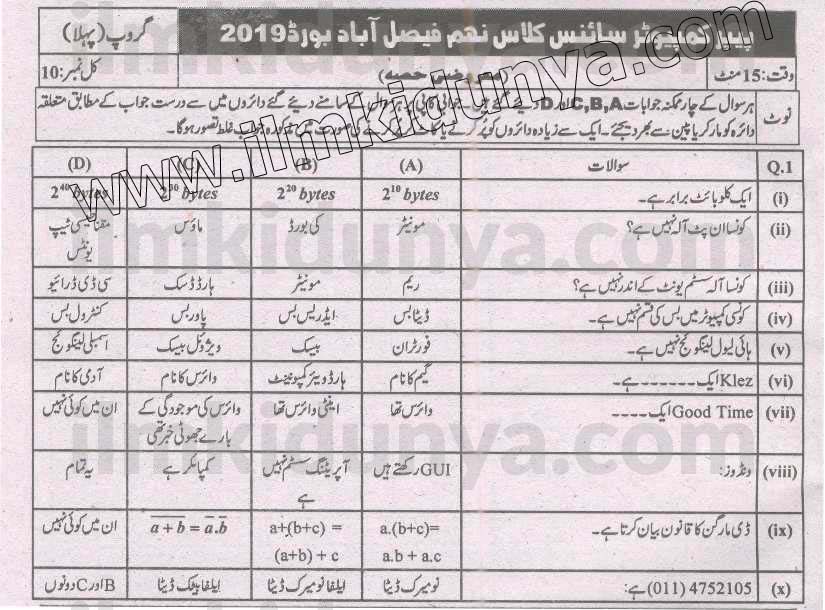 پیپر کمپیوٹر سائنس کلاس نہم فیصل آباد بورڈ 2019 گروپ (پہلا)
وقت: 15 منٹ (معروضی حصہ) کل نمبر: 10
نوٹ ہر سوال کے چار ممکنہ جوابات C,B,A اور D دیئے گئے ہیں۔ جوابی کاپی پر ہر سوال کے سامنے دیئے گئے دائروں میں سے درست جواب کے مطابق متعلقہ
دائرہ کو مارکر یا پین سے بھر دیجئے۔ ایک سے زیادہ دائروں کو پُر کرنے یا کاٹ کر پُر کرنے کی صورت میں مذکورہ جواب غلط تصور ہوگا۔
Q.1 سوالات (A) (B) (C) (D)
(i) ایک کلو بائٹ برابر ہے۔ 2¹⁰ bytes 2²⁰ bytes 2³⁰ bytes 2⁴⁰ bytes
(ii) کونسا ان پٹ آلہ نہیں ہے؟ مونیٹر کی بورڈ ماؤس مقناطیسی ٹیپ
یونٹس
(iii) کونسا آلہ سسٹم یونٹ کے اندر نہیں ہے؟ ریم مونیٹر ہارڈ ڈسک سی ڈی ڈرائیو
(iv) کونسی کمپیوٹر میں بس کی قسم نہیں ہے۔ ڈیٹا بس ایڈریس بس پاور بس کنٹرول بس
(v) ہائی لیول لینگوئج نہیں ہے۔ فورٹران بیسک ویژوئل بیسک اسمبلی لینگوئج
(vi) Klez ایک ------- ہے۔ گیم کا نام ہارڈ ویئر کمپونینٹ وائرس کا نام آدمی کا نام
(vii) Good Time ایک ---- وائرس تھا اینٹی وائرس تھا وائرس کی موجودگی کے ان میں کوئی نہیں
بارے جھوٹی خبر تھی
(viii) ونڈوز: GUI رکھتے ہیں آپریٹنگ سسٹم نہیں کمپائلر ہے یہ تمام
ہے
(ix) ڈی مارگن کا قانون بیان کرتا ہے۔ a.(b+c)= a+(b+c) = a̅+̅b̅ = a̅.b̅ ان میں کوئی نہیں
a.b + a.c (a+b) + c
(x) (011) 4752105 ہے: نومیرک ڈیٹا ایلفا نومیرک ڈیٹا ایلفابیٹک ڈیٹا B اور C دونوں
www.ilmkidunya.com
ilmkidunya.com
ilmkidunya.com
ilmkidunya.com